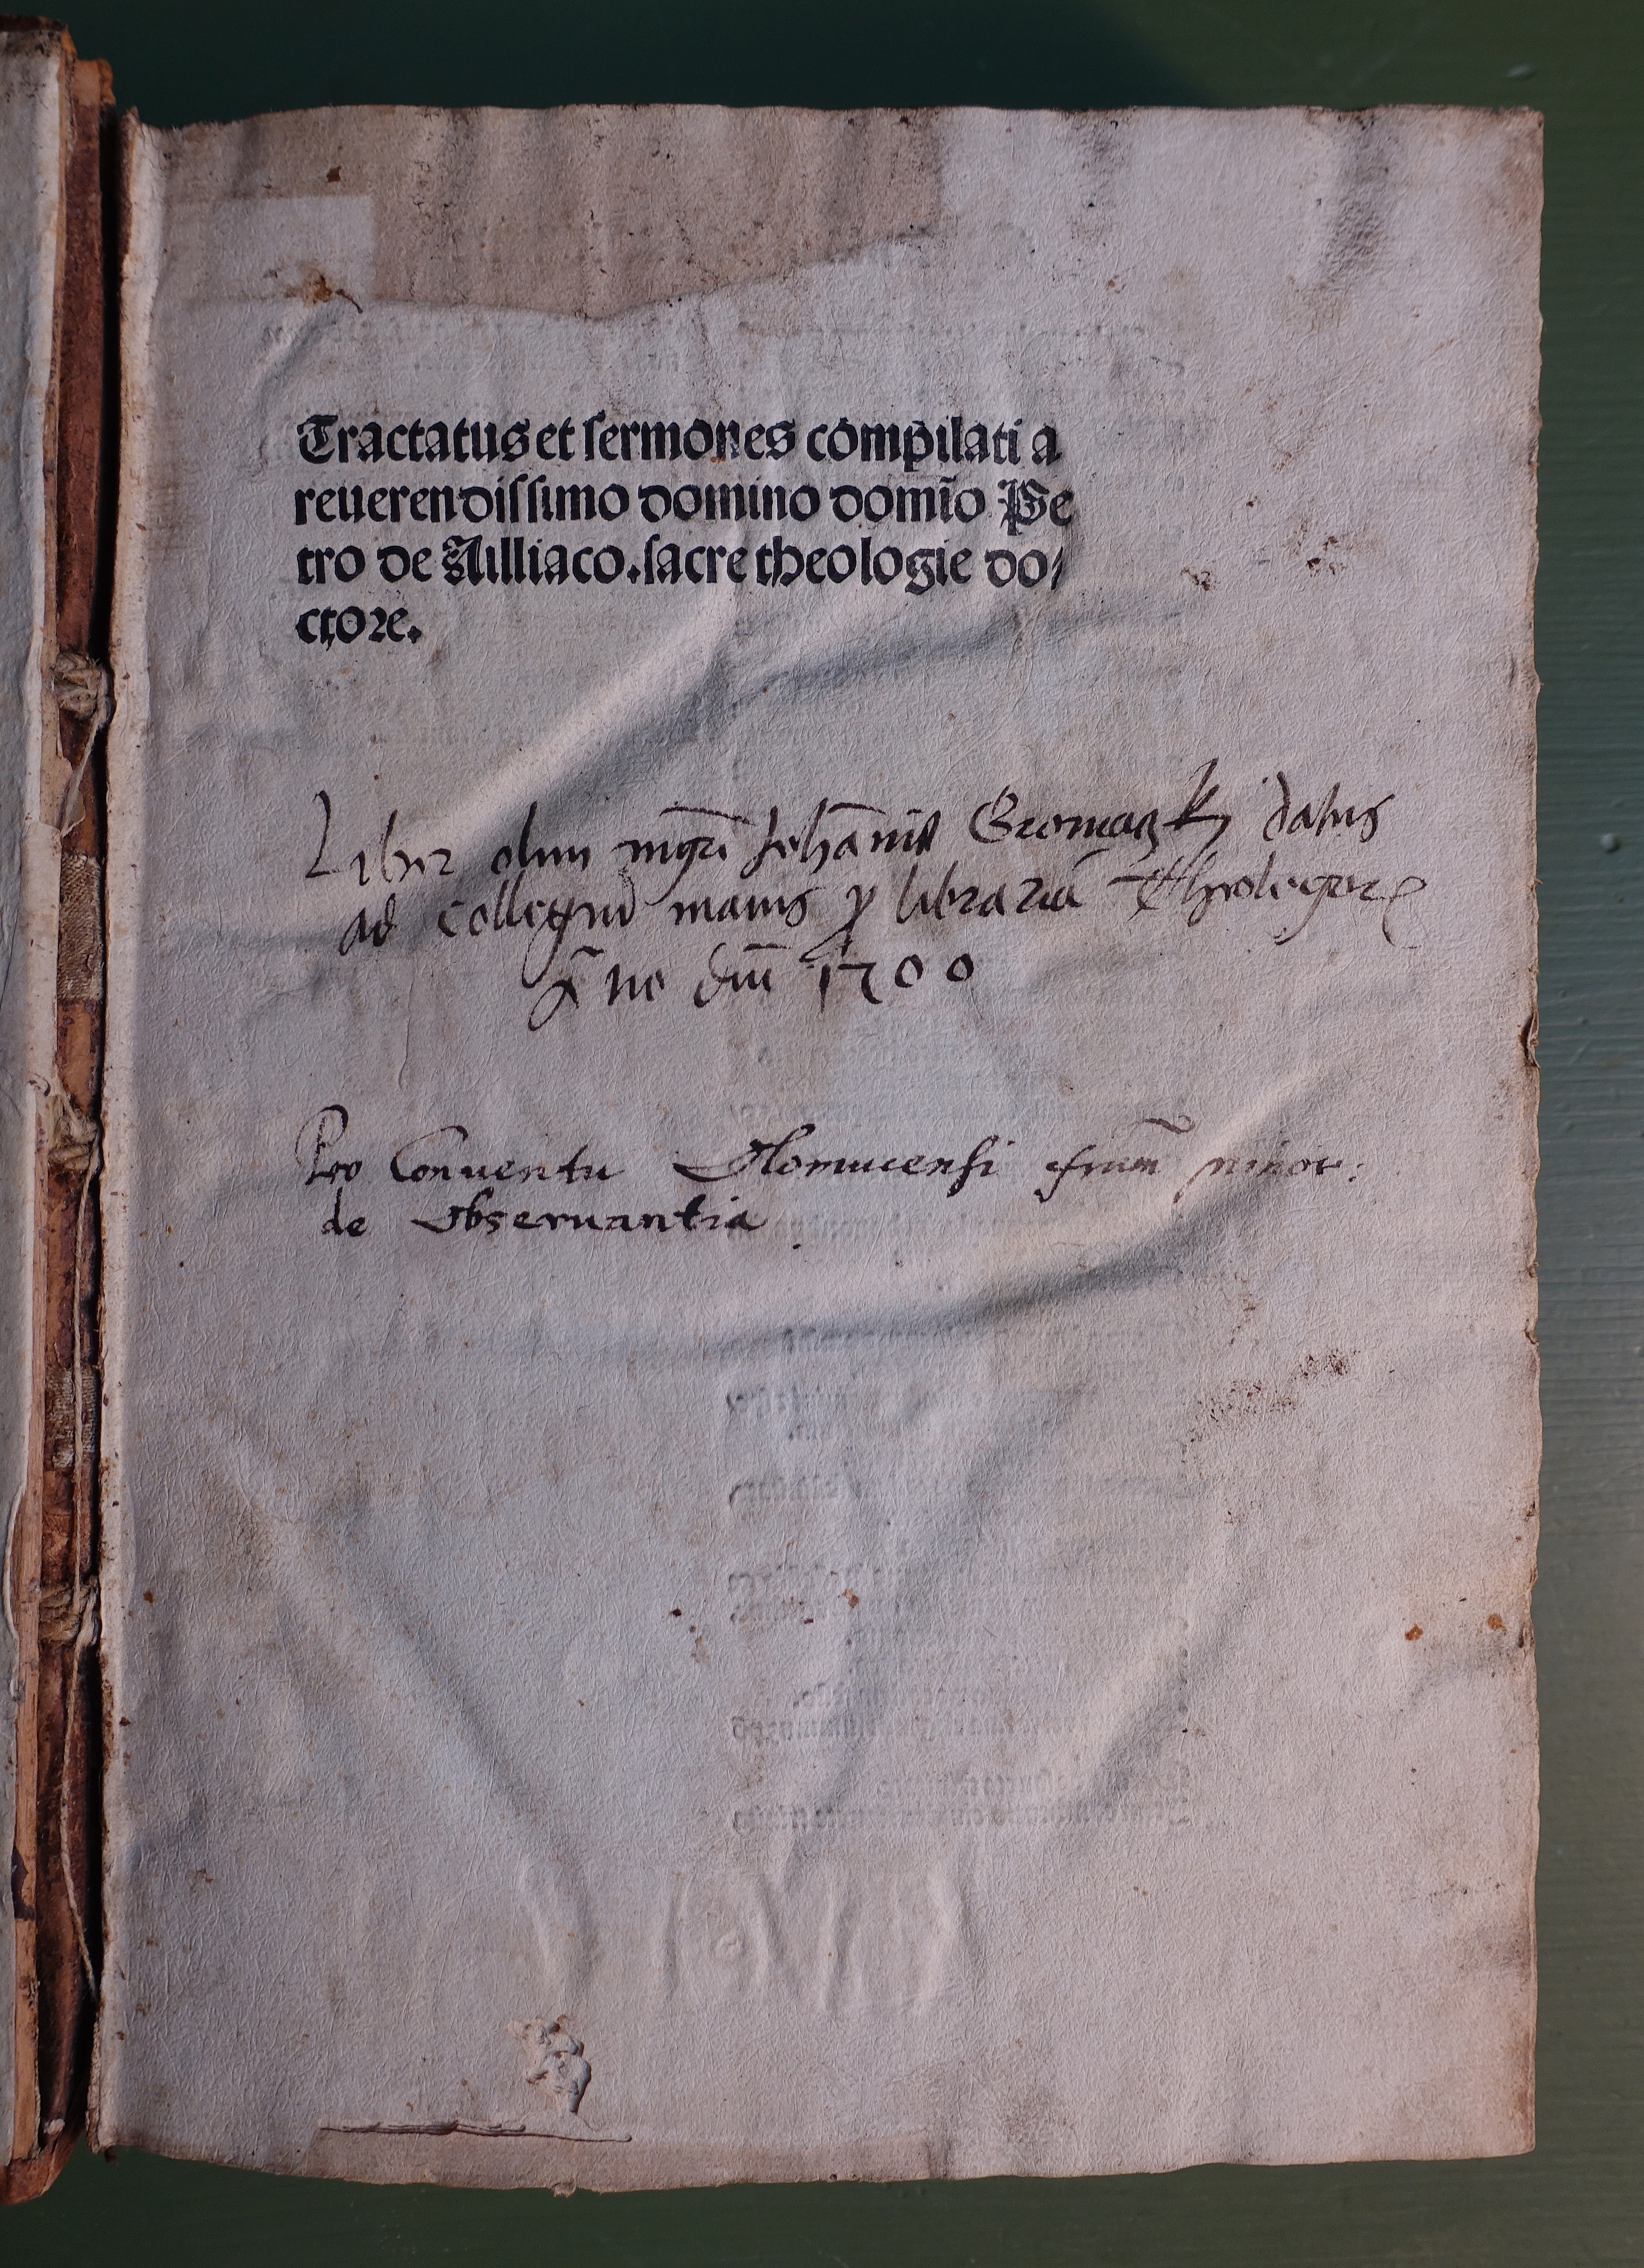 Tractatus et sermones compilati a
reuerendissimo domino domĩo Pe
tro de Ailliaco. sacre theologie do/
ctore.
Liber olim mgri Johānis Gromaczky datus
ad collegiū maius ꝓ librariā Theologorꝝ
Āno dm̄ 1500
Pro Conuentu Olomucensi frum̄ minor:
de Obseruantia